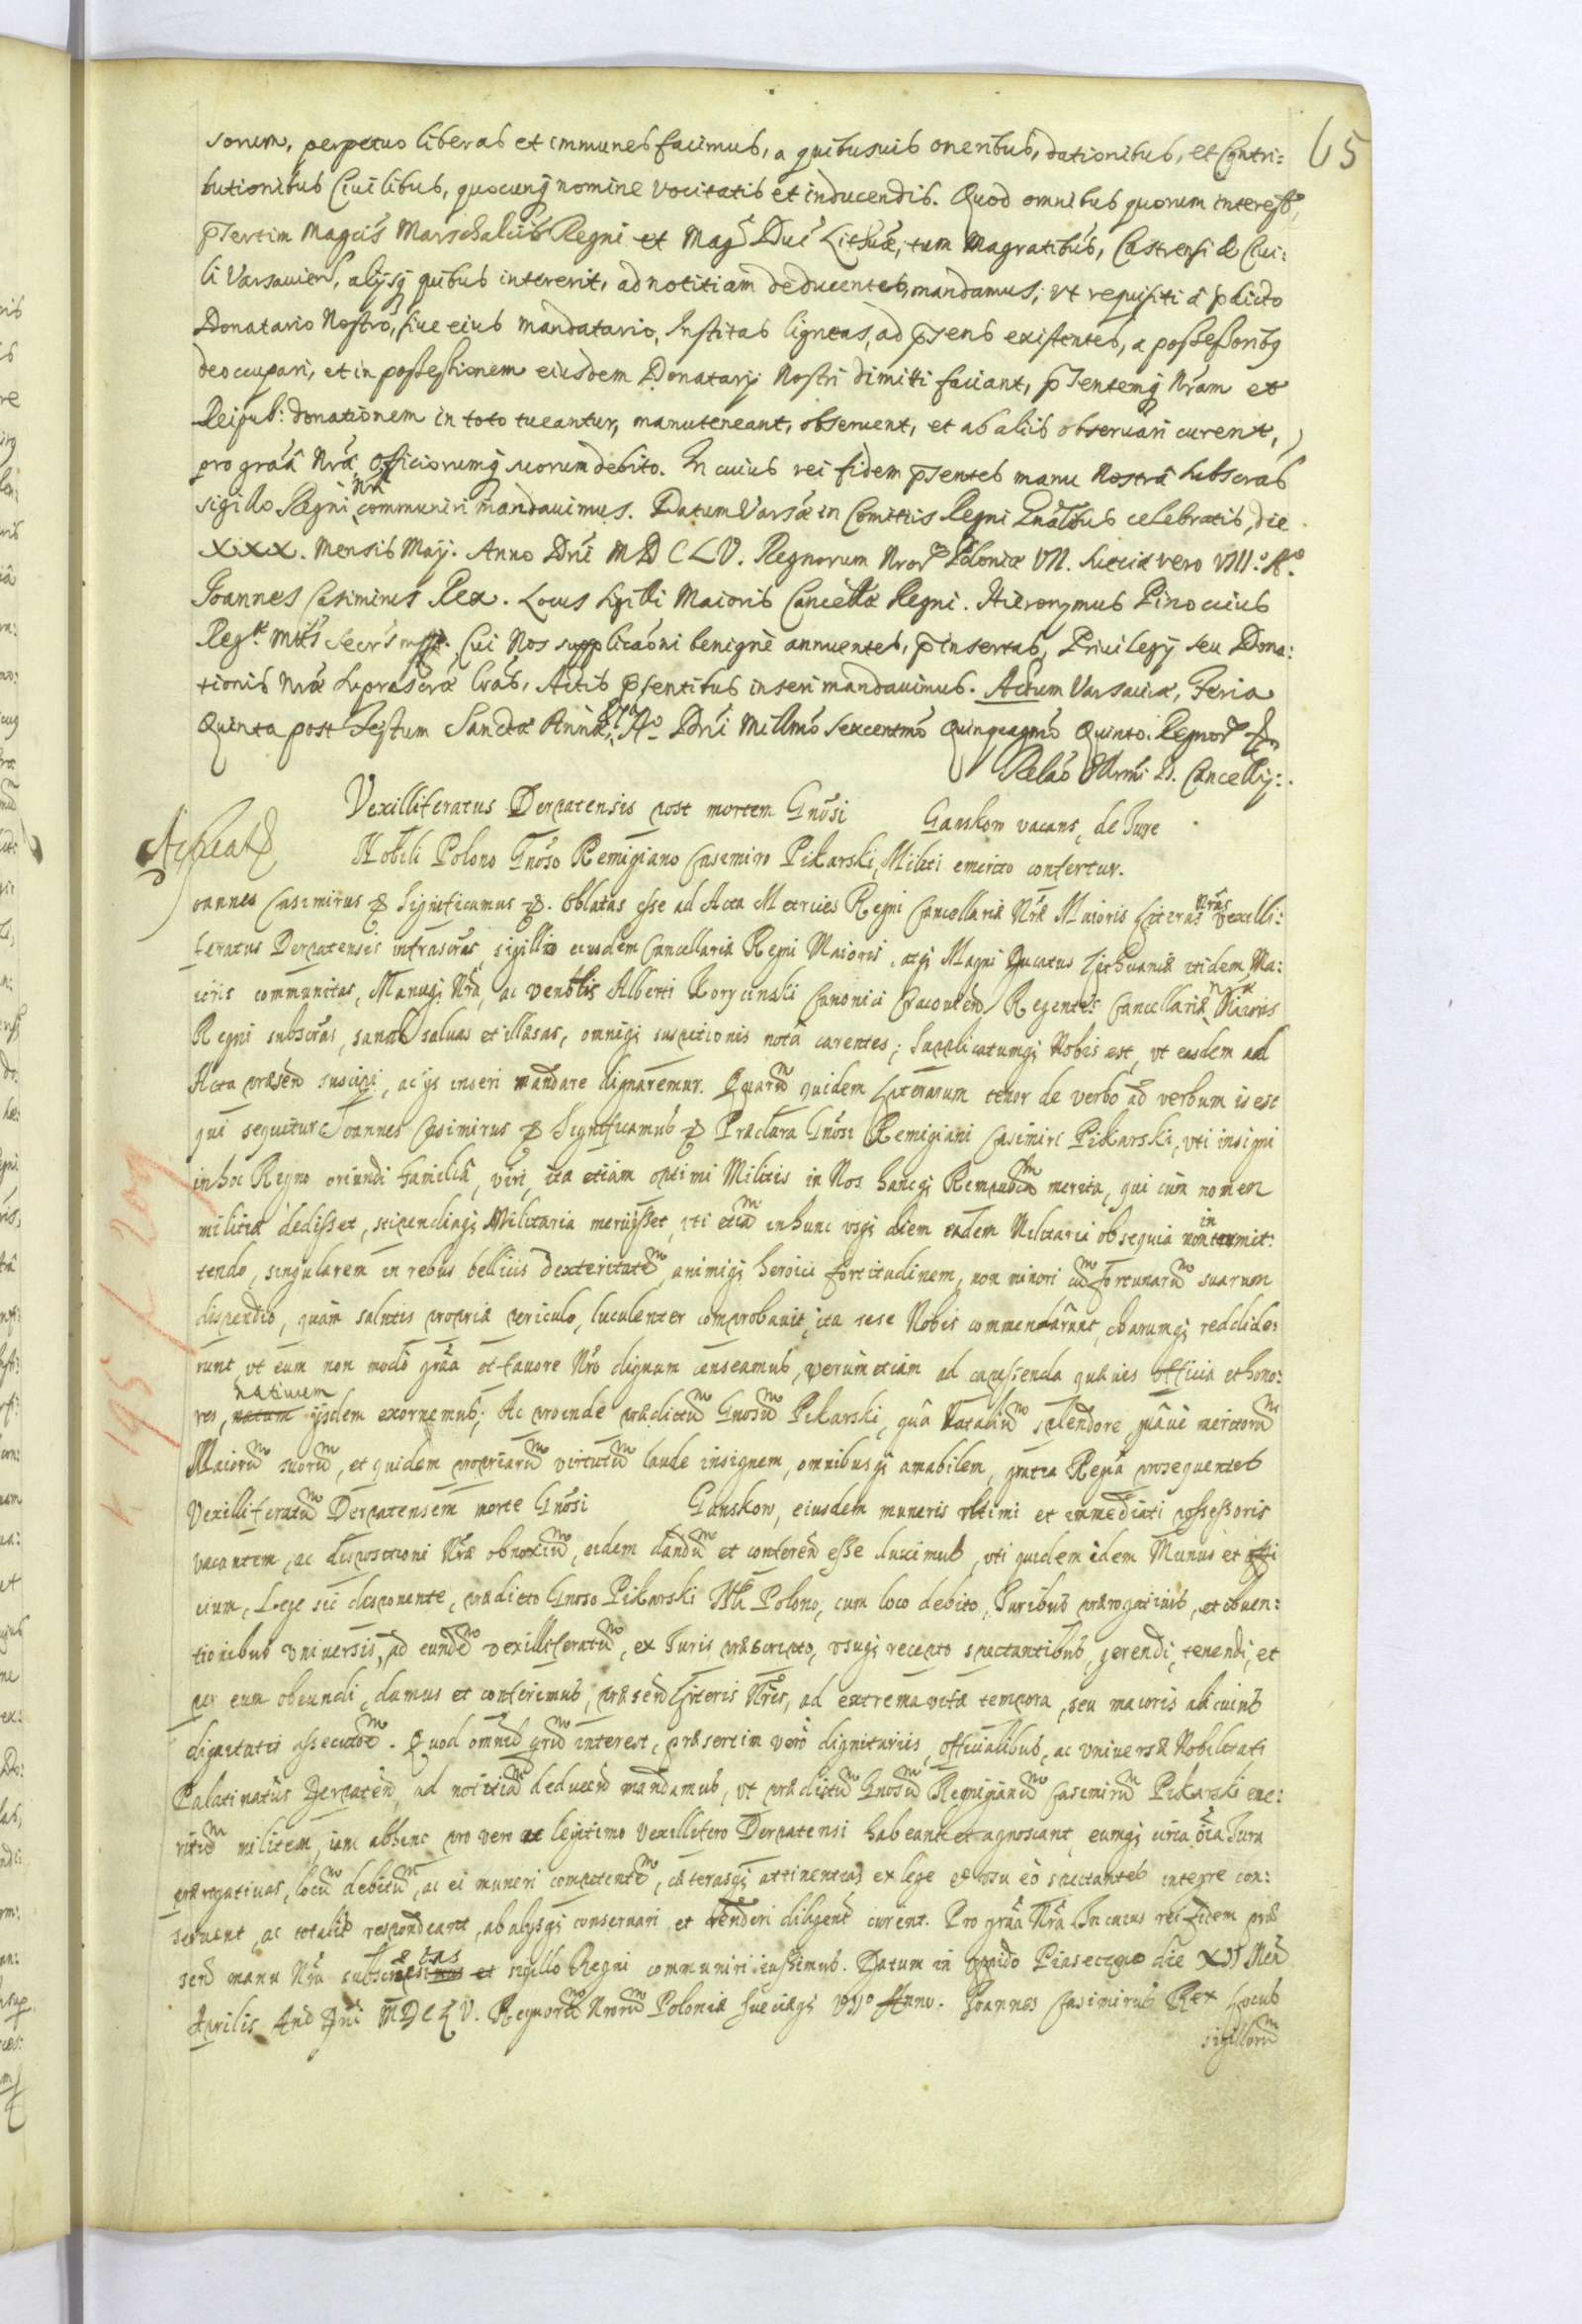 65
sorum, perpetuo liberas et immunes facimus, a quibusuis oneribus, dationibus, et Contri:
butionibus Ciuilibus, quocunq nomine vocitatis et inducendis. Quod omnibus quorum interest,
psertim Magcis Marschalcis Regni et Mag: Duc: Lithuae, tum Magratibus, Castrensi & Ciui:
li Varsauien, alijsq quibus intererit, ad notitiam deducentes, mandamus, vt requisiti à pdicto
Donatario Nostro, siue eius mandatario, Institas ligneas, ad psens existentes, a possessoribq
deoccupari, et in possessionem eiusdem Donatarij Nostri dimitti faciant, psentemq Nram et
Reipub: donationem in toto tueantur, manuteneant, obseruent, et ab aliis obseruari curent,
pro graa Nra, Officiorumq suorum debito. In cuius rei fidem psentes manu Nostra subscras
sigillo Regni Nri communiri mandauimus. Datum Varsae in Comitiis Regni Gnalibus celebratis, die
XIXX. Mensis Maij. Anno Dni MDCLV. Regnorum Nror Poloniae VII. Sueciae vero VIII. Ao.
Joannes Casimirus Rex. Locus Sigilli Maioris Cancellae Regni. Hieronymus Pinoccius
Reg. Mtis Secrs mpp. Cui Nos supplicaoni benignè annuentes, pinsertas, Priuilegij seu Dona:
tionis Nrae suprascrae lras, Actis psentibus inseri mandauimus. Actum Varsauiae, Feria
Quinta post Festum Sanctae Annae, Ao Dni Millmo Sexcentmo Quinquagmo Quinto. Regnor &
Relao Illrmi D. Cancellij:
Vexilliferatus Derpatensis post mortem Gnosi Ganskow vacans, de Jure
Nobili Polono Gnoso Remigiano Casimiro Pikarski, Militi emerito confertur.
Joannes Casimirus & Significamus &. Oblatas esse ad Acta Metrices Regni Cancellariae Nrae Maioris Literas Nras vexilli:
feratus Derpatensis infrascras, sigillis eiusdem Cancellariae Regni Maioris, atq Magni Ducatus Lithuaniae itidem Ma:
ioris communitas, Manuq Nra, ac venblis Alberti Korycinski Canonici Cracouien Regentis Cancellariae Nrae Maioris
Regni subscras, sanas saluas et illaesas, omniq suspitionis nota carentes; Supplicatumq Nobis est, vt easdem ad
Acta praesen suscipi, ac ijs inseri mandare dignaremur. Quarum quidem Literarum tenor de verbo ad verbum is est
qui sequitur Joannes Casimirus & Significamus & Praeclara Gnosi Remigiani Casimiri Pikarski, vti insigni
in hoc Regno oriundi familia, viri, ita etiam optimi Militis in Nos hancq Rempubcam merita, qui cum nomen
militiae dedisset, stipendiaq Militaria meruisset, vti etiam in hunc vsq diem eadem Militaria obsequia non intermit:
tendo, singularem in rebus bellicis dexteritatem, animiq heroici fortitudinem, non minori cum fortunarum suarum
dispendio, quàm salutis propriae periculo, luculenter comprobauit, ita sese Nobis commendarunt, charumq reddide:
runt, vt eum non modo graa et fauore Nro dignum censeamus, verum etiam ad capessenda quaeuis officia et hono:
res, natum natiuum ijsdem exornemus; Ac proinde praedictum Gnosum Pikarski, quà Natalium splendore, quàuè meritorum
Maiorum suorum, et quidem propriarum virtutum laude insignem, omnibusq amabilem, gratia Regia prosequentes
Vexilliferatum Derpatensem morte Gnosi Ganskow, eiusdem muneris vltimi et immediati possessoris
vacantem, ac dispositioni Nrae obnoxium, eidem dandum et conferen esse duximus, vti quidem idem Munus et offi
cium, Lege sic disponente, praedicto Gnoso Pikarski Nbli Polono, cum loco debito, Juribus praerogatiuis, et obuen:
tionibus vniuersis, ad eundem vexilliferatum, ex Juris praescripto, vsuq recepto spectantibus, gerendi, tenendi, et
per eum obeundi, damus et conferimus, praesen Literis Nris, ad extrema vitae tempora, seu maioris alicuius
dignitatis assecutoem. Quod omnib qrum interest, praesertim verò dignitariis, officialibus, ac vniuersae Nobilitati
Palatinatus Derpaten, ad notitiam deducen mandamus, vt praedictum Gnosum Remigianum Casimirum Pikarski eme:
ritum militem, iam abhinc pro vero ac legitimo vexillifero Derpatensi habeant et agnoscant, eumq circa oia Jura
praerogatiuas, locum debitum, ac ei muneri competentem, caeterasq attinentias ex lege et vsu eò spectantes integre con:
seruent, ac totalit respondeant, ab alijsq conseruari et responderi diligent curent. Pro graa Nra. In cuius rei fidem prae
sen manu Nra subscriptas et sigillo Regni communiri iussimus. Datum in oppido Piaseczno die XVI Men
Aprilis Ano Dni MDCLV. Regnorum Nrorum Poloniae Sueciaeq VIIo Anno. Joannes Casimirus Rex Locus
sigillorum